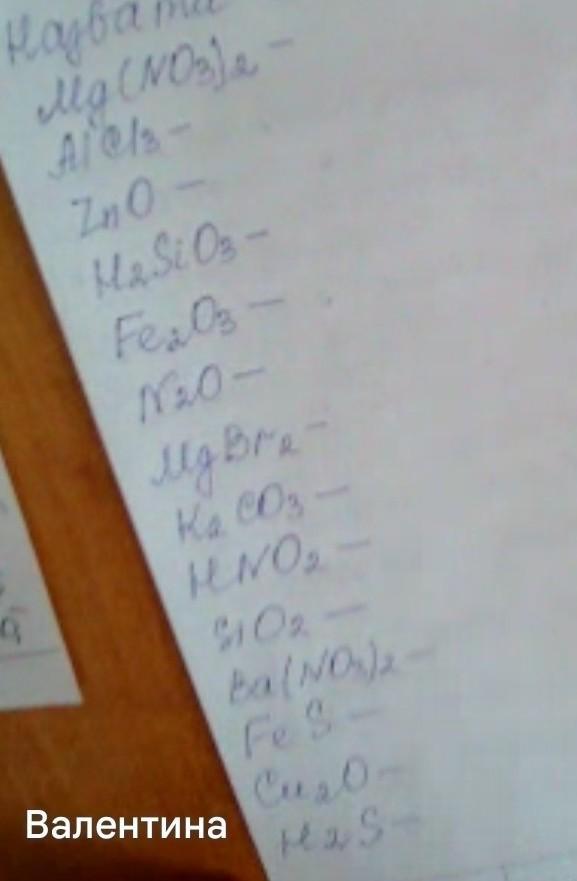 Назвати
Mg(NO3)2 –
AlCl3 –
ZnO –
H2SiO3 –
Fe2O3 –
N2O –
MgBr2 –
K2CO3 –
HNO2 –
SiO2 –
Ba(NO3)2 –
FeS –
Cu2O –
H2S –
Валентина